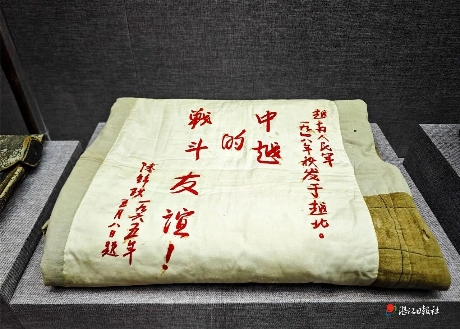 越南人民军
一九四八年秋发于越北。
中越
的
战斗友谊！
一九六五年
五月八日题
湛江日报社